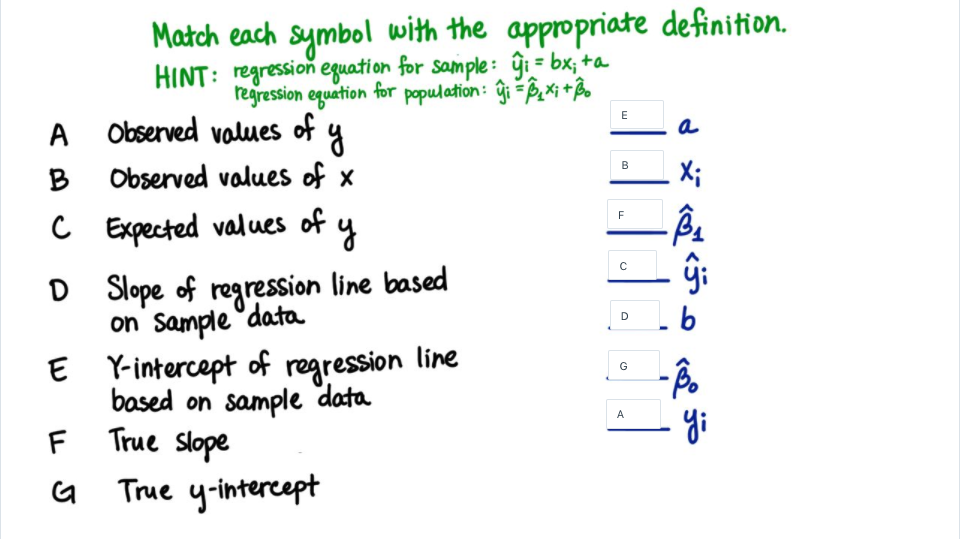 Match each symbol with the appropriate definition.
HINT: regression equation for sample: ŷi = bxi + a
regression equation for population: ŷi = β̂1xi + β̂0
A Observed values of y
B Observed values of x
C Expected values of y
D Slope of regression line based
on sample data
E Y-intercept of regression line
based on sample data
F True slope
G True y-intercept
E a
B xi
F β̂1
C ŷi
D b
G β̂0
A yi